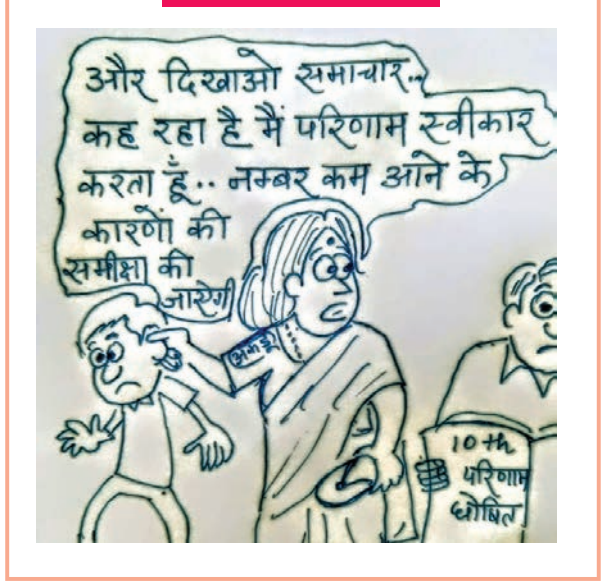 और दिखाओ समाचार..
कह रहा है मैं परिणाम स्वीकार
करता हूँ.. नम्बर कम आने के
कारणों की
समीक्षा की
जाएगी
10th
परिणाम
घोषित